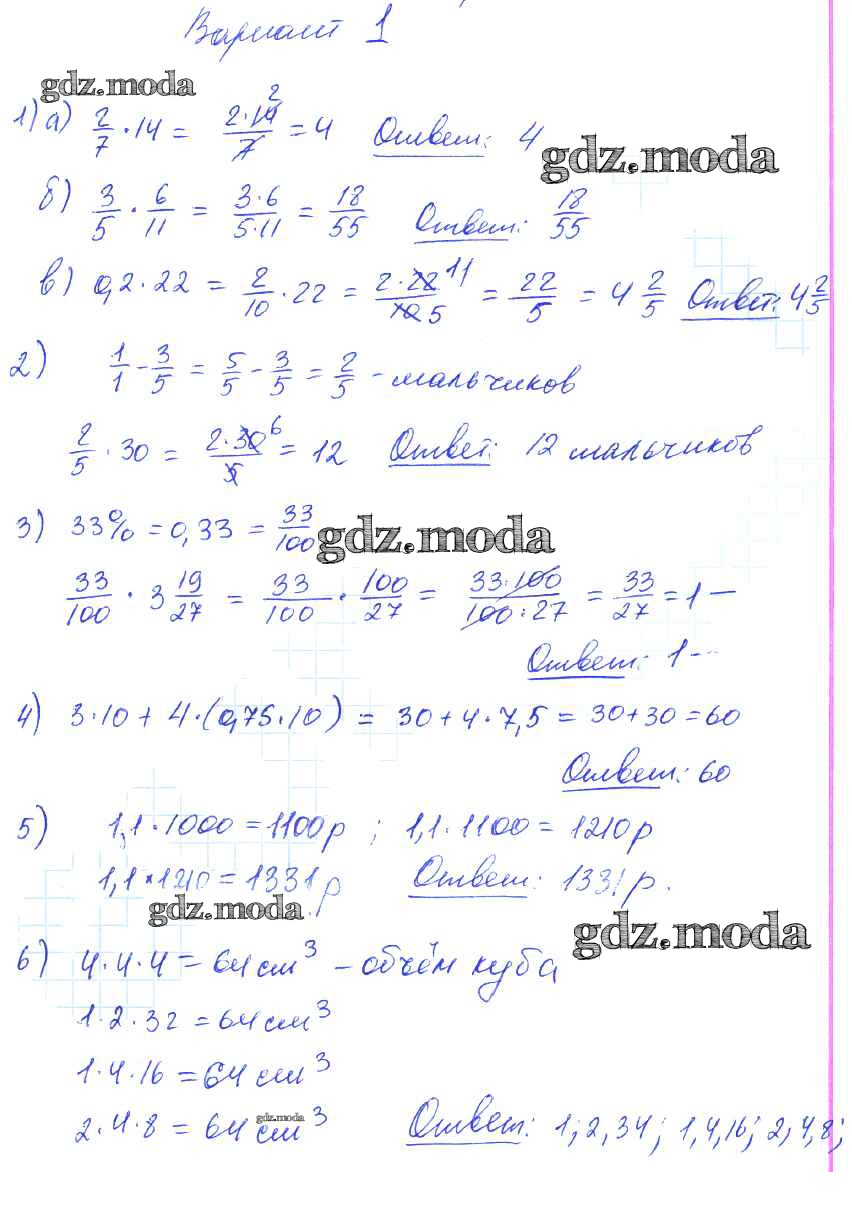 Вариант 1
gdz.moda
1) а) 2/7 · 14 = 2·14/7 2 = 4 Ответ: 4
gdz.moda
б) 3/5 · 6/11 = 3·6/5·11 = 18/55 Ответ: 18/55
в) 0,2 · 22 = 2/10 · 22 = 2·22 11/10 5 = 22/5 = 4 2/5 Ответ: 4 2/5
2) 1/1 - 3/5 = 5/5 - 3/5 = 2/5 - мальчиков
2/5 · 30 = 2·30 6/5 = 12 Ответ: 12 мальчиков
3) 33% = 0,33 = 33/100 gdz.moda
33/100 · 3 19/27 = 33/100 · 100/27 = 33·100/100·27 = 33/27 = 1 —
Ответ: 1 -
4) 3·10 + 4·(0,75·10) = 30 + 4·7,5 = 30+30 = 60
Ответ: 60
5) 1,1·1000 = 1100р ; 1,1·1100 = 1210р
1,1·1210 = 1331р Ответ: 1331р.
gdz.moda
gdz.moda
6) 4·4·4 = 64 см³ - объём куба
1·2·32 = 64 см³
1·4·16 = 64 см³
2·4·8 = 64 см³ gdz.moda Ответ: 1; 2, 34; 1, 4, 16; 2, 4, 8;